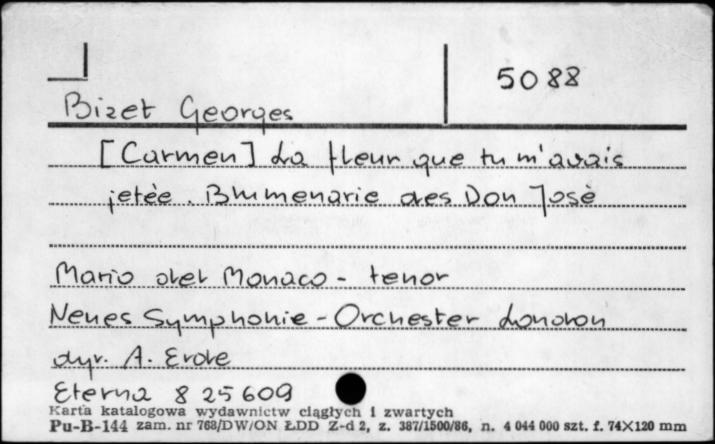 5088
Bizet Georges
[Carmen] La fleur que tu m'avais
jetée. Blumenarie des Don José
Mario del Monaco - tenor
Neues Symphonie - Orchester London
dyr. A. Erede
Eterna 8 25 609
Karta katalogowa wydawnictw ciągłych i zwartych
Pu-B-144 zam. nr 768/DW/ON ŁDD Z-d 2, z. 387/1500/86, n. 4 044 000 szt. f. 74X120 mm